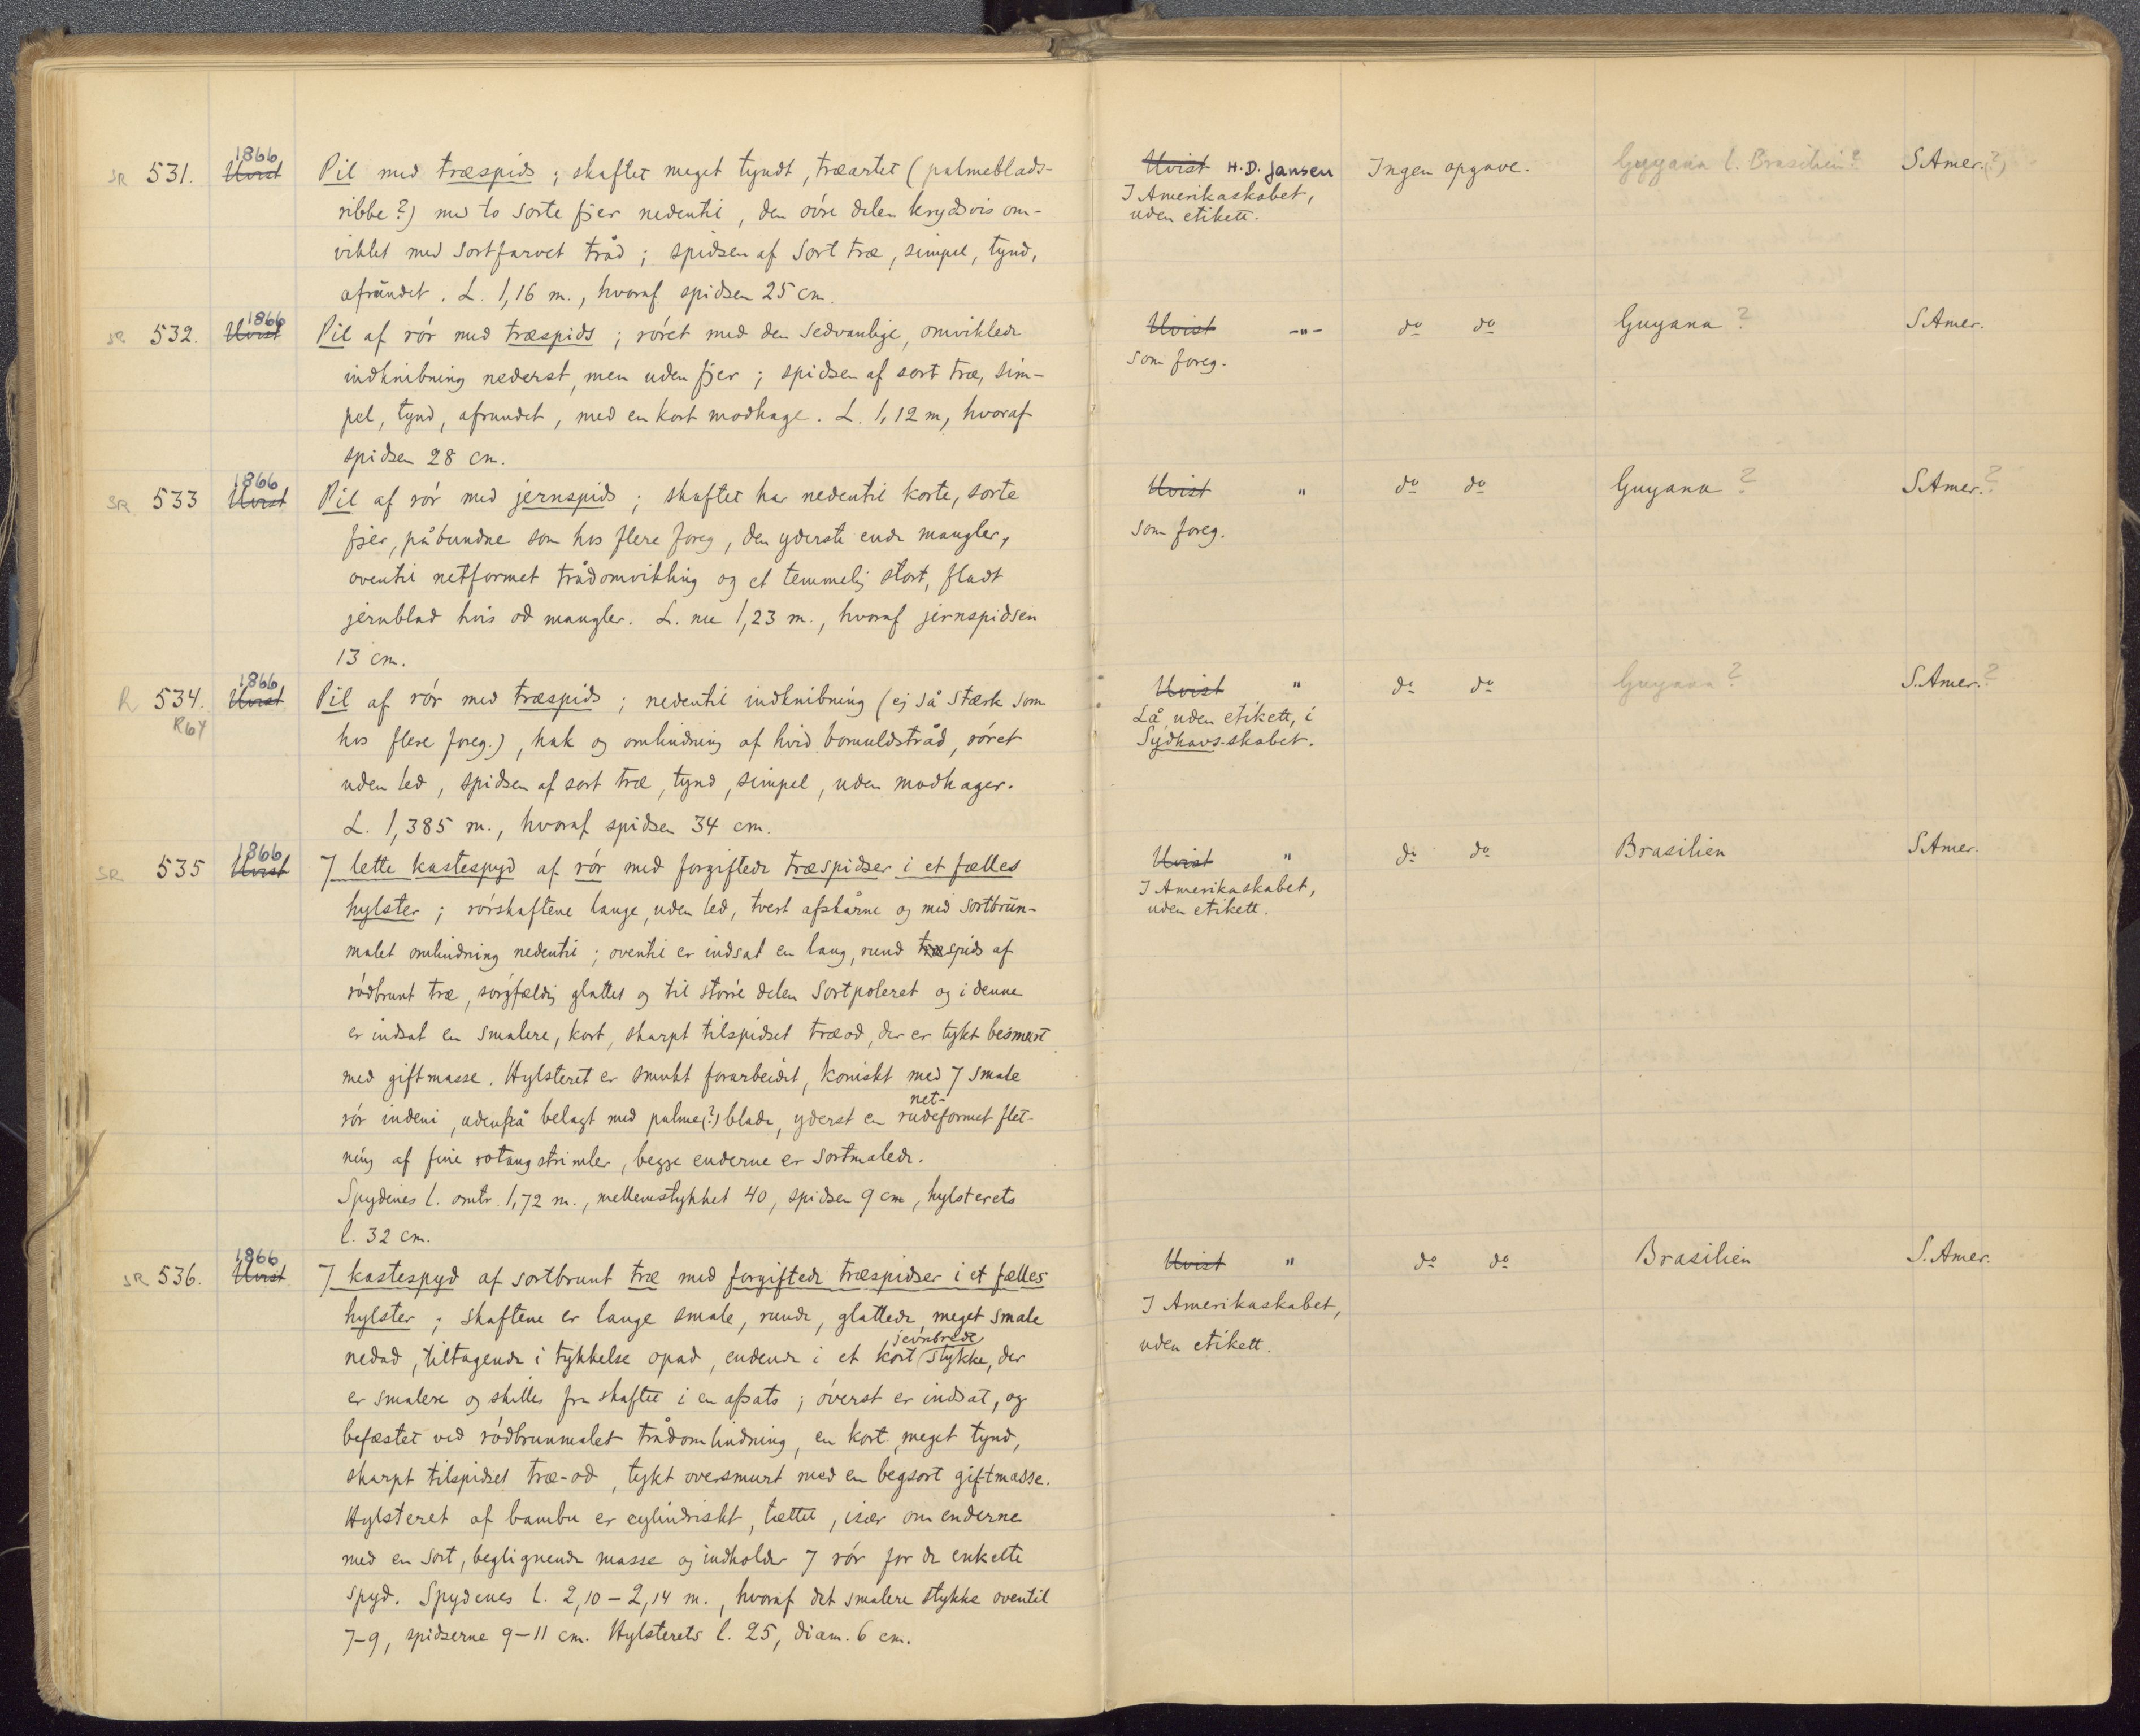 SR 531. 1866 Uvist Pil med træspids ; skaftet meget tyndt, træartet (palmeblads- Uvist H.D. Jansen Ingen opgave. Guyana l. Brasilien? S.Amer.(?)
ribbe?) med to sorte fjer nedentil, den övre delen krydsvis om- I Amerikaskabet,
viklet med sortfarvet tråd ; spidsen af sort træ, simpel, tynd, uden etikett.
afrundet. L. 1,16 m., hvoraf spidsen 25 cm.
SR 532. 1866 Uvist Pil af rör med træspids ; röret med den sedvanlige, omviklede Uvist -"- do do Guyana ? S.Amer.
indknibning nederst, men uden fjer ; spidsen af sort træ, sim- som foreg.
pel, tynd, afrundet, med en kort modhage. L. 1,12 m, hvoraf
spidsen 28 cm.
SR 533 1866 Uvist Pil af rör med jernspids ; skaftet har nedentil korte, sorte Uvist " do do Guyana ? S.Amer.?
fjer, påbundne som hos flere foreg, den yderste ende mangler, som foreg.
oventil netformet trådomvikling og et temmelig stort, fladt
jernblad hvis od mangler. L. nu 1,23 m., hvoraf jernspidsen
13 cm.
R 534. 1866 Uvist Pil af rör med træspids ; nedentil indknibning (ej så stærk som Uvist " do do Guyana ? S.Amer.?
R64 hos flere foreg.), hak og omlindning af hvid bomuldstråd, röret Lå, uden etikett, i
uden led, spidsen af sort træ, tynd, simpel, uden modhager. Sydhavs-skabet.
L. 1,385 m., hvoraf spidsen 34 cm.
SR 535 1866 Uvist 7 lette kastespyd af rör med forgiftede træspidser i et fælles Uvist " do do Brasilien S.Amer.
hylster ; rörskaftene lange, uden led, tvert afskårne og med sortbrun- I Amerikaskabet,
malet omlindning nedentil ; oventil er indsat en lang, rund træspids af uden etikett.
rödbrunt træ, sorgfældig glattet og til större delen sortpoleret og i denne
er indsat en smalere, kort, skarpt tilspidset træod, der er tykt besmurt
med giftmasse. Hylsteret er smukt forarbeidet, koniskt med 7 smale
net-
rör indeni, udenpå belagt med palme(?)blade, yderst en rudeformet flet-
ning af fine rotangstrimler, begge enderne er sortmalede.
Spydenes l. omtr. 1,72 m., mellemstykket 40, spidsen 9 cm, hylsterets
l. 32 cm.
SR 536. 1866 Uvist 7 kastespyd af sortbrunt træ med forgiftede træspidser i et fælles Uvist " do do Brasilien S.Amer.
hylster ; skaftene er lange smale, runde, glattede, meget smale I Amerikaskabet,
jevnbrede
nedad, tiltagende i tykkelse opad, endende i et kort stykke, der uden etikett.
er smalere og skilles fra skaftet i en afsats ; överst er indsat, og
befæstet ved rödbrunmalet trådomlindning, en kort, meget tynd,
skarpt tilspidset træ-od, tykt oversmurt med en begsort giftmasse.
Hylsteret af bambu er cylindriskt, tættet, især om enderne
med en sort, beglignende masse og indholder 7 rör for de enkelte
spyd. Spydenes l. 2,10 – 2,14 m., hvoraf det smalere stykke oventil
7–9, spidserne 9–11 cm. Hylsterets l. 25, diam. 6 cm.